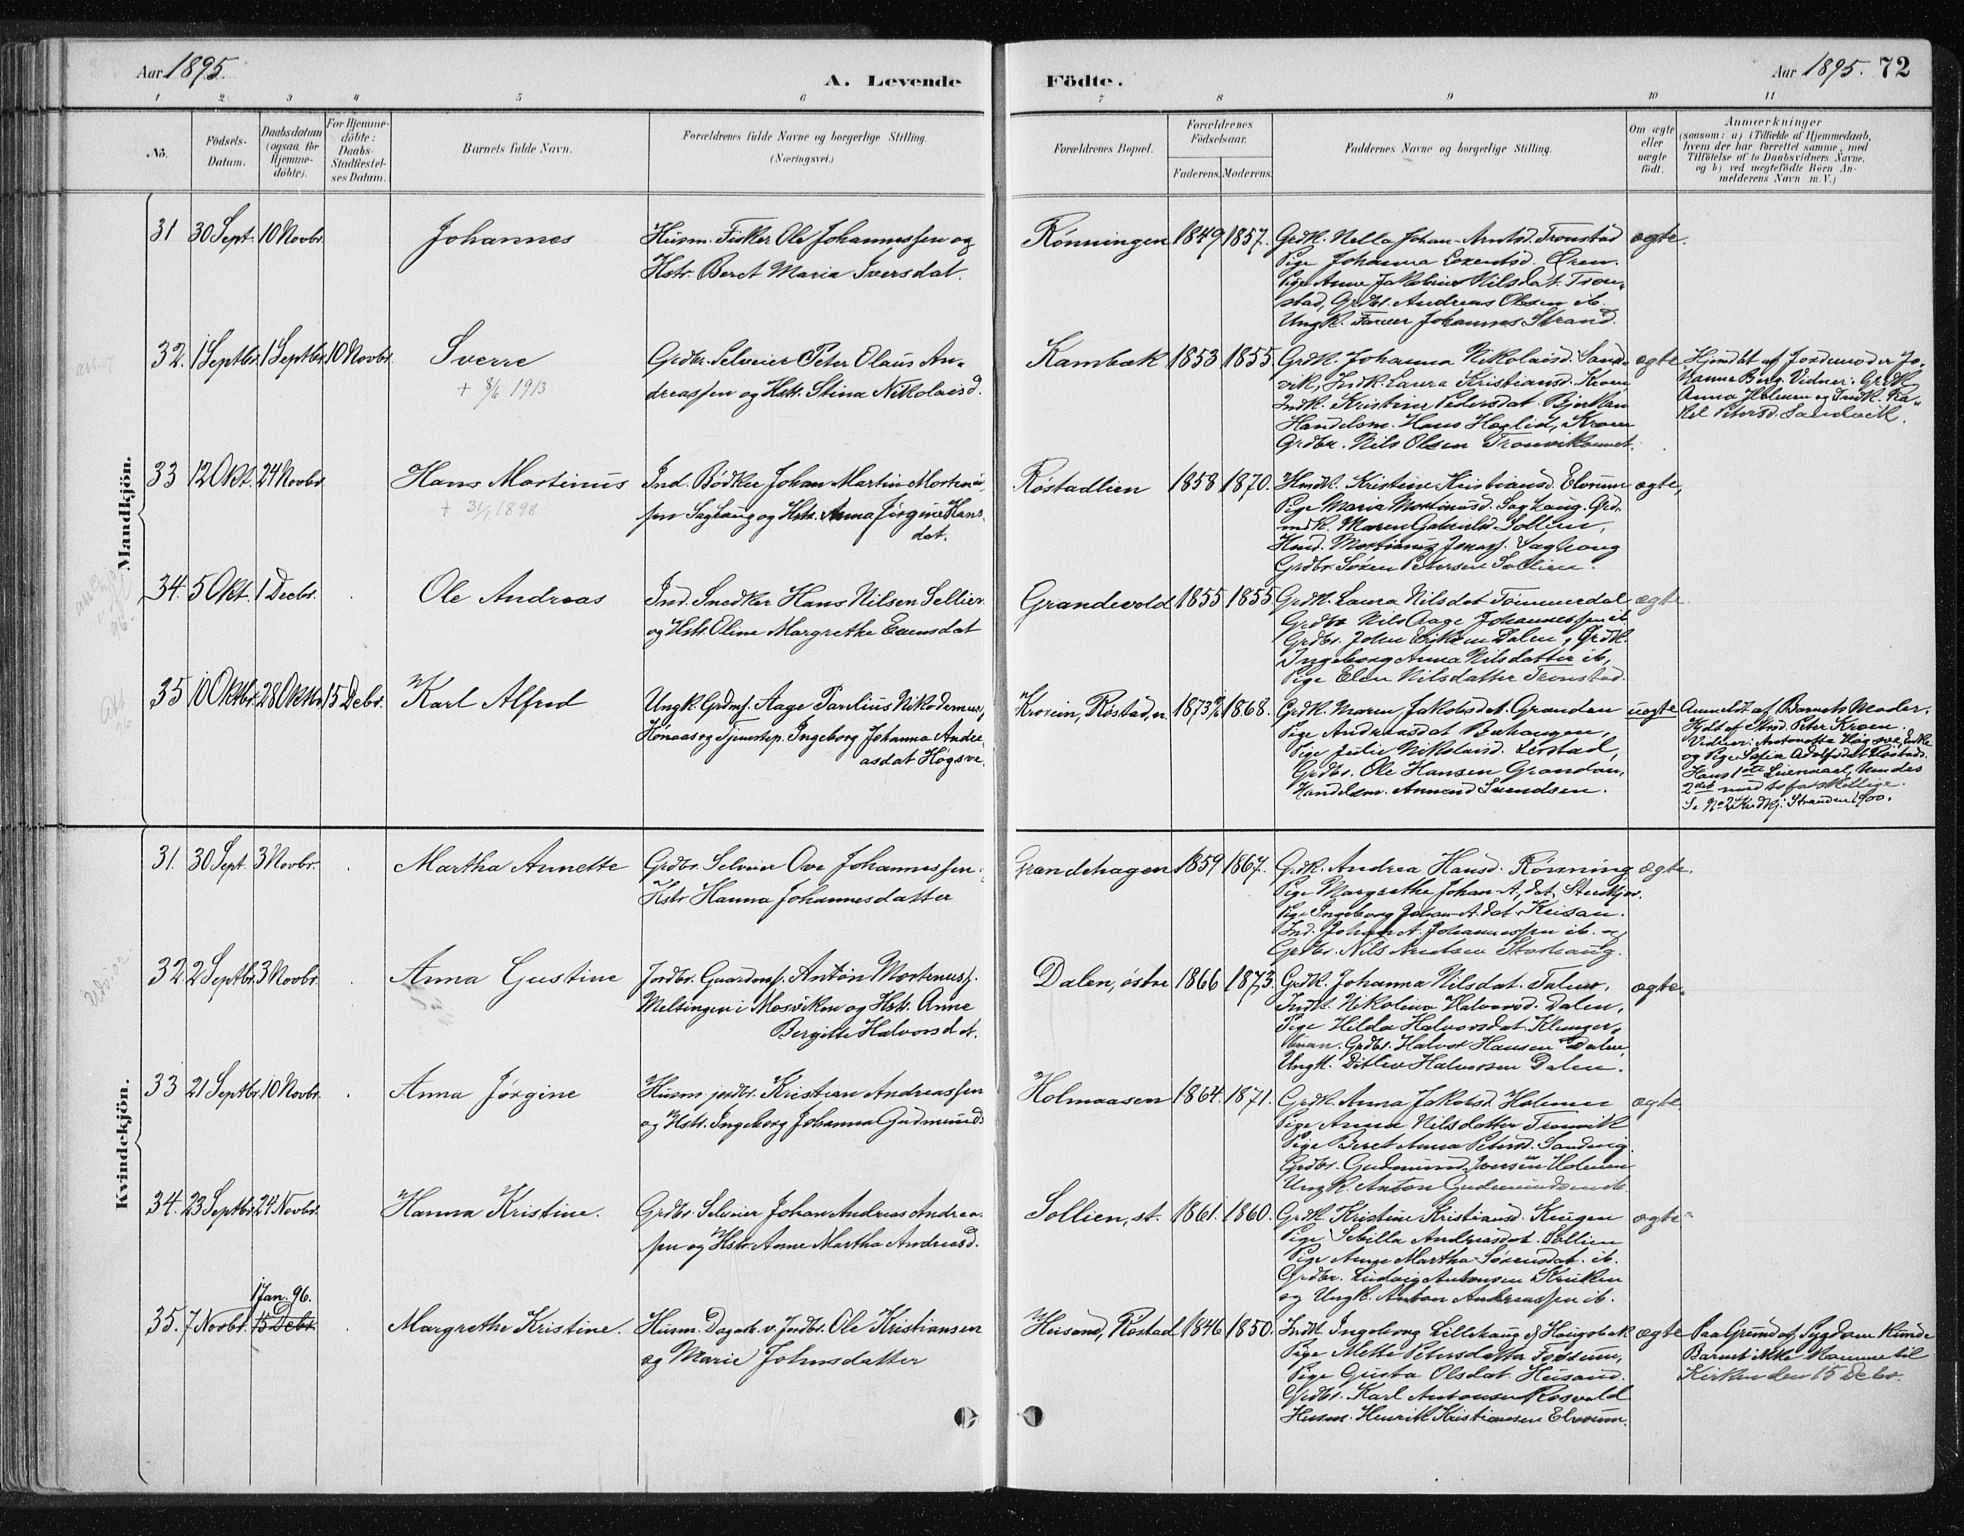 Aar 1895.
A. Levende Födte.
Aar 1895. 72
1 2 3 4 5 6 7 8 9 10 11
No.
Födsels-
Datum.
Daabsdatum
(ogsaa for
Hjemme-
döbte).
For Hjemme-
döbte:
Daabs-
Stadfæstel-
ses Datum.
Barnets fulde Navn.
Forældrenes fulde Navne og borgerlige Stilling.
(Næringsvei.)
Forældrenes Bopæl.
Forældrenes
Födselsaar.
Faderens. Moderens.
Faddernes Navne og borgerlige Stilling.
Om ægte
eller
uægte
födt.
Anmærkninger
(saasom: a) i Tilfælde af Hjemmedaab,
hvem der har forrettet samme, med
Tilföielse af to Daabsvidners Navne,
og b) ved uægtefödte Börn An-
melderens Navn m. V.)
Mandkjön.
31 30 Sept. 10 Novbr.
Johannes
Husm. Fisker Ole Johannessen og
Hstr. Beret Maria Iversdat.
Rønningen 1849 1857.
Grdk. Nella Johan-Arntsd. Tronstad
Pige Johanna Øren.
Pige Anne Jakobine Nilsdat. Tron-
stad, Grdbr. Andreas Olsen ib.
Ungk. Farver Johannes Strand.
ægte.
32. 1 Septbr. 1 Septbr. 10 Novbr.
Sverre
+ 8/6 1913
Grdbr. Selveier Peter Olaus An-
dreassen og Hstr. Stina Nikolaisd.
Kambæk 1853 1855
Grdk. Johanna Nikolaisd. Sand-
vik, Indk. Laura Kristiansd. Kroen
Indk. Kristine Pedersdat. Bjerkan
Handelsm. Hans Høglid, Kroen
Grdbr. Nils Olsen
ægte
Hjmdbt af Jordemoder Jo-
hanna Berg. Vidner: Grdk.
Anna Holmen og Indk. Ra-
kel Petersd. Sandvik.
33 12 Okt. 24 Novbr.
Hans Martinus
+ 31/1 1898
Ind. Bødker Johan Martin Martinus-
sen Saghaug og Hstr. Anna Jørgine Hans-
dat.
Røstadlien 1858 1870.
Hmdk. Kristine Kristiansd. Elvrum
Pige Maria Martinusd. Saghaug. Grd-
mdk. Maren Gabrielsd. Sollien,
Hmd. Martinus Jonass. Saghaug
Grdbr. Søren Petersen Sollien.
ægte,
34. 5 Okt. 1 Decbr.
Ole Andreas
Ind. Snedker Hans Nilsen Sellier
og Hstr. Oline Margrethe Evensdat
Grandevold 1855 1855
Grdk. Laura Nilsdat Tømmerdal
Grdbr Nils Aage Johannessen ib
Grdbr. John Eriksen Dalen, Grdk.
Ingeborg Anna Nilsdatter ib,
Pige Elen Nilsdatter Tronstad.
ægte.
35 10 Oktbr. 28 Oktbr. 15 Debr.
Karl Alfred
Ungk. Grdms. Aage Paulius Nikodemus-
Hönaas og Tjenestep. Ingeborg Johanna Andre-
asdat Högsve.
Kroein, Røstad, n. 1868.
Grdk. Maren Jakobsdat. Granden
Pige Andreasdat Buhaugen,
Pige Julie Nikolaisd. Lerstad,
Grdbr. Ole Hansen Grandan,
Handelsm. Anmund Svendsen.
uægte
Anmeldt af Barnets Moder.
Hjdt af Stud. Peter Kroen.
Vidner: Antonette
og Pige Sofie Adolfsdat Røstad.
Hans 1ste Leiermaal, hendes
2det med to forskjellige.
Kvindekjön.
31. 30 Sept. 3 Novbr.
Martha Annette
Grdbr. Selveier Ove Johannessen
Hstr Hanna Johannesdatter
Grandehagen 1859 1867.
Grdk. Andrea Hansd. Rønning
Pige Margrethe Johan-A, dat,
Pige Ingeborg Johan-A. dat.
Ind. Johan A. Johannessen ib. og
Grdbr. Nils Arntsen Storhaug.
ægte.
32. 2 Septbr. 3 Novbr.
Anna Gustine
Jordbr. Gaardms. Anton Mortenus.
Meltingen i Mosviken og Hstr. Anne
Bergitte Halvorsdat.
Dalen, østre 1866 1873.
Grdk. Johanna Nilsdat.
Indk. Nikolina Halvorsd. Dalen,
Pige Hilda Halvorsdat. Klunger-
Grdbr. Halvor Hansen Dalen,
Ungk. Ditlev Halvorsen Dalen.
ægte.
33 21 Septbr. 10 Novbr.
Anna Jørgine
Husm. jordbr. Kristian Andreassen
og Hstr. Ingeborg Johanna Gudmunds
Holmaasen 1864. 1871.
Grdk. Anna Jakobsd. Holmen
Pige Anna Nilsdatter Tronvik
Pige Beret Anna Petersd. Sandvig
Grdbr. Gudmund Iversen Holmen
Ungk. Anton
ægte
34. 23 Septbr. 24 Novbr.
Hanna Kristine.
Grdbr. Selveier Johan Andreas Andreas-
sen og Hstr Anne Martha Andreasd.
Sollien, st. 1861. 1860.
Grdk. Kristine Kristiansd.
Pige Sebilla Andreasdat. Sollien
Pige Anne Martha Sørensdat. ib.
Grdbr. Ludvig Antonsen Kruken
og Ungk. Anton Andreassen ib.
ægte
35. 7 Novbr. 1 Jan. 96. 15 Debr.
Margrethe Kristine.
Husm. Dagarb. v. Jordbr. Ole Kristiansen
og Marie Johnsdatter
Husand, Røstad 1846 1850.
Indk. Ingeborg Lillehaug
Pige Mette Petersdatter Forrum,
Pige Gusta Olsdat. Husand.
Grdbr. Karl Antonsen Rosvold
Husm. Henrik Kristiansen Elvrum.
ægte
Paa Grund af Sygdom kunde
Barnet ikke komme til
Kirken den 15 Debr.